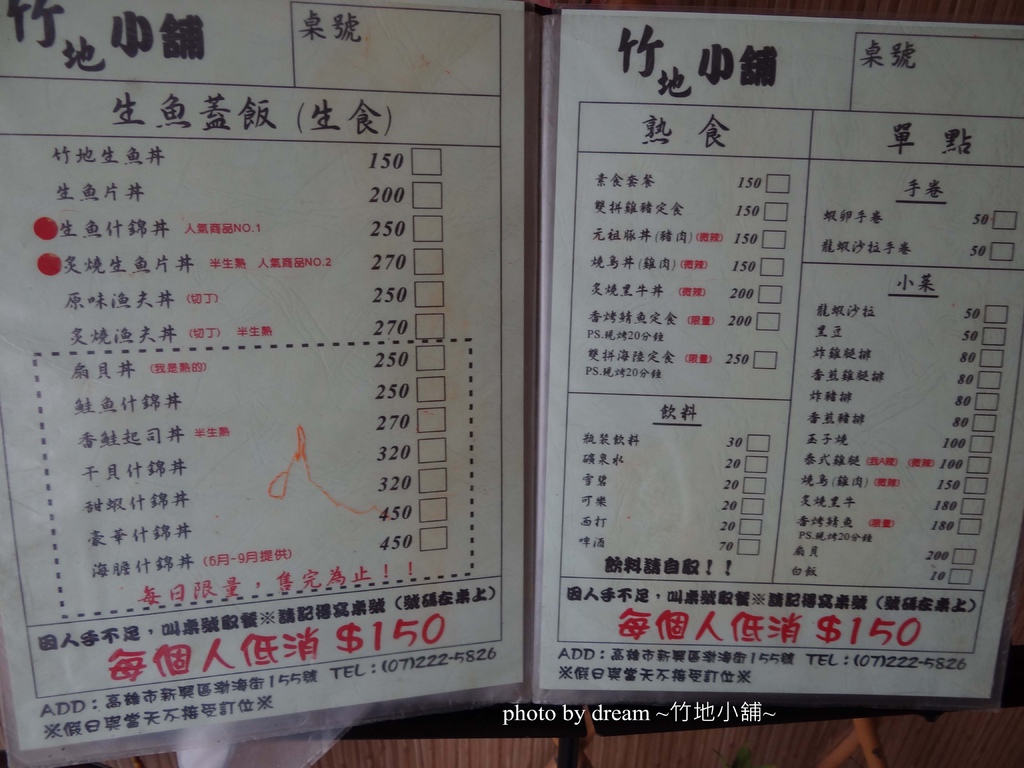 竹地小舖
桌號
生魚蓋飯(生食)
竹地生魚丼 150
生魚片丼 200
生魚什錦丼 人氣商品NO.1 250
炙燒生魚片丼 半生熟 人氣商品NO.2 270
原味漁夫丼 (切丁) 250
炙燒漁夫丼 (切丁) 半生熟 270
扇貝丼 (我是熟的) 250
鮭魚什錦丼 250
香鮭起司丼 半生熟 270
干貝什錦丼 320
甜蝦什錦丼 320
豪華什錦丼 450
海膽什錦丼 (6月~9月提供) 450
每日限量,售完為止!!
因人手不足,叫桌號取餐※請記得寫桌號(號碼在桌上)
每個人低消 $150
ADD:高雄市新興區渤海街155號 TEL:(07)222-5826
※假日與當天不接受訂位※
竹地小舖
桌號
熟食
素食套餐 150
雙拼雞豬定食 150
元祖豚丼(豬肉)(微辣) 150
燒鳥丼(雞肉)(微辣) 150
炙燒黑牛丼 (微辣) 200
香烤鯖魚定食 (限量) 200
PS.現烤20分鐘
雙拼海陸定食 (限量) 250
PS.現烤20分鐘
飲料
瓶裝飲料 30
礦泉水 20
雪碧 20
可樂 20
西打 20
啤酒 70
飲料請自取!!
單點
手卷
蝦卵手卷 50
龍蝦沙拉手卷 50
小菜
龍蝦沙拉 50
黑豆 50
炸雞腿排 80
香煎雞腿排 80
炸豬排 80
香煎豬排 80
玉子燒 100
泰式雞腿 (我A辣) (微辣) 100
燒鳥(雞肉)(微辣) 150
炙燒黑牛 180
香烤鯖魚 (限量) 180
PS.現烤20分鐘
扇貝 200
白飯 10
因人手不足,叫桌號取餐※請記得寫桌號(號碼在桌上)
每個人低消 $150
ADD:高雄市新興區渤海街155號 TEL:(07)222-5826
※假日與當天不接受訂位※
photo by dream ~竹地小舖~